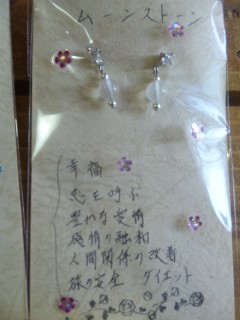 ムーンストーン
幸福
恋を呼ぶ
豊かな愛情
感情の融和
人間関係の改善
旅の安全 ダイエット